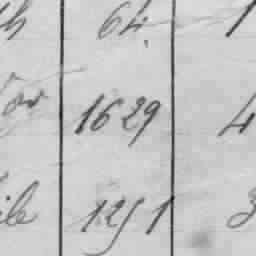 th 64. 1
or 1629 4
ile 1251 3